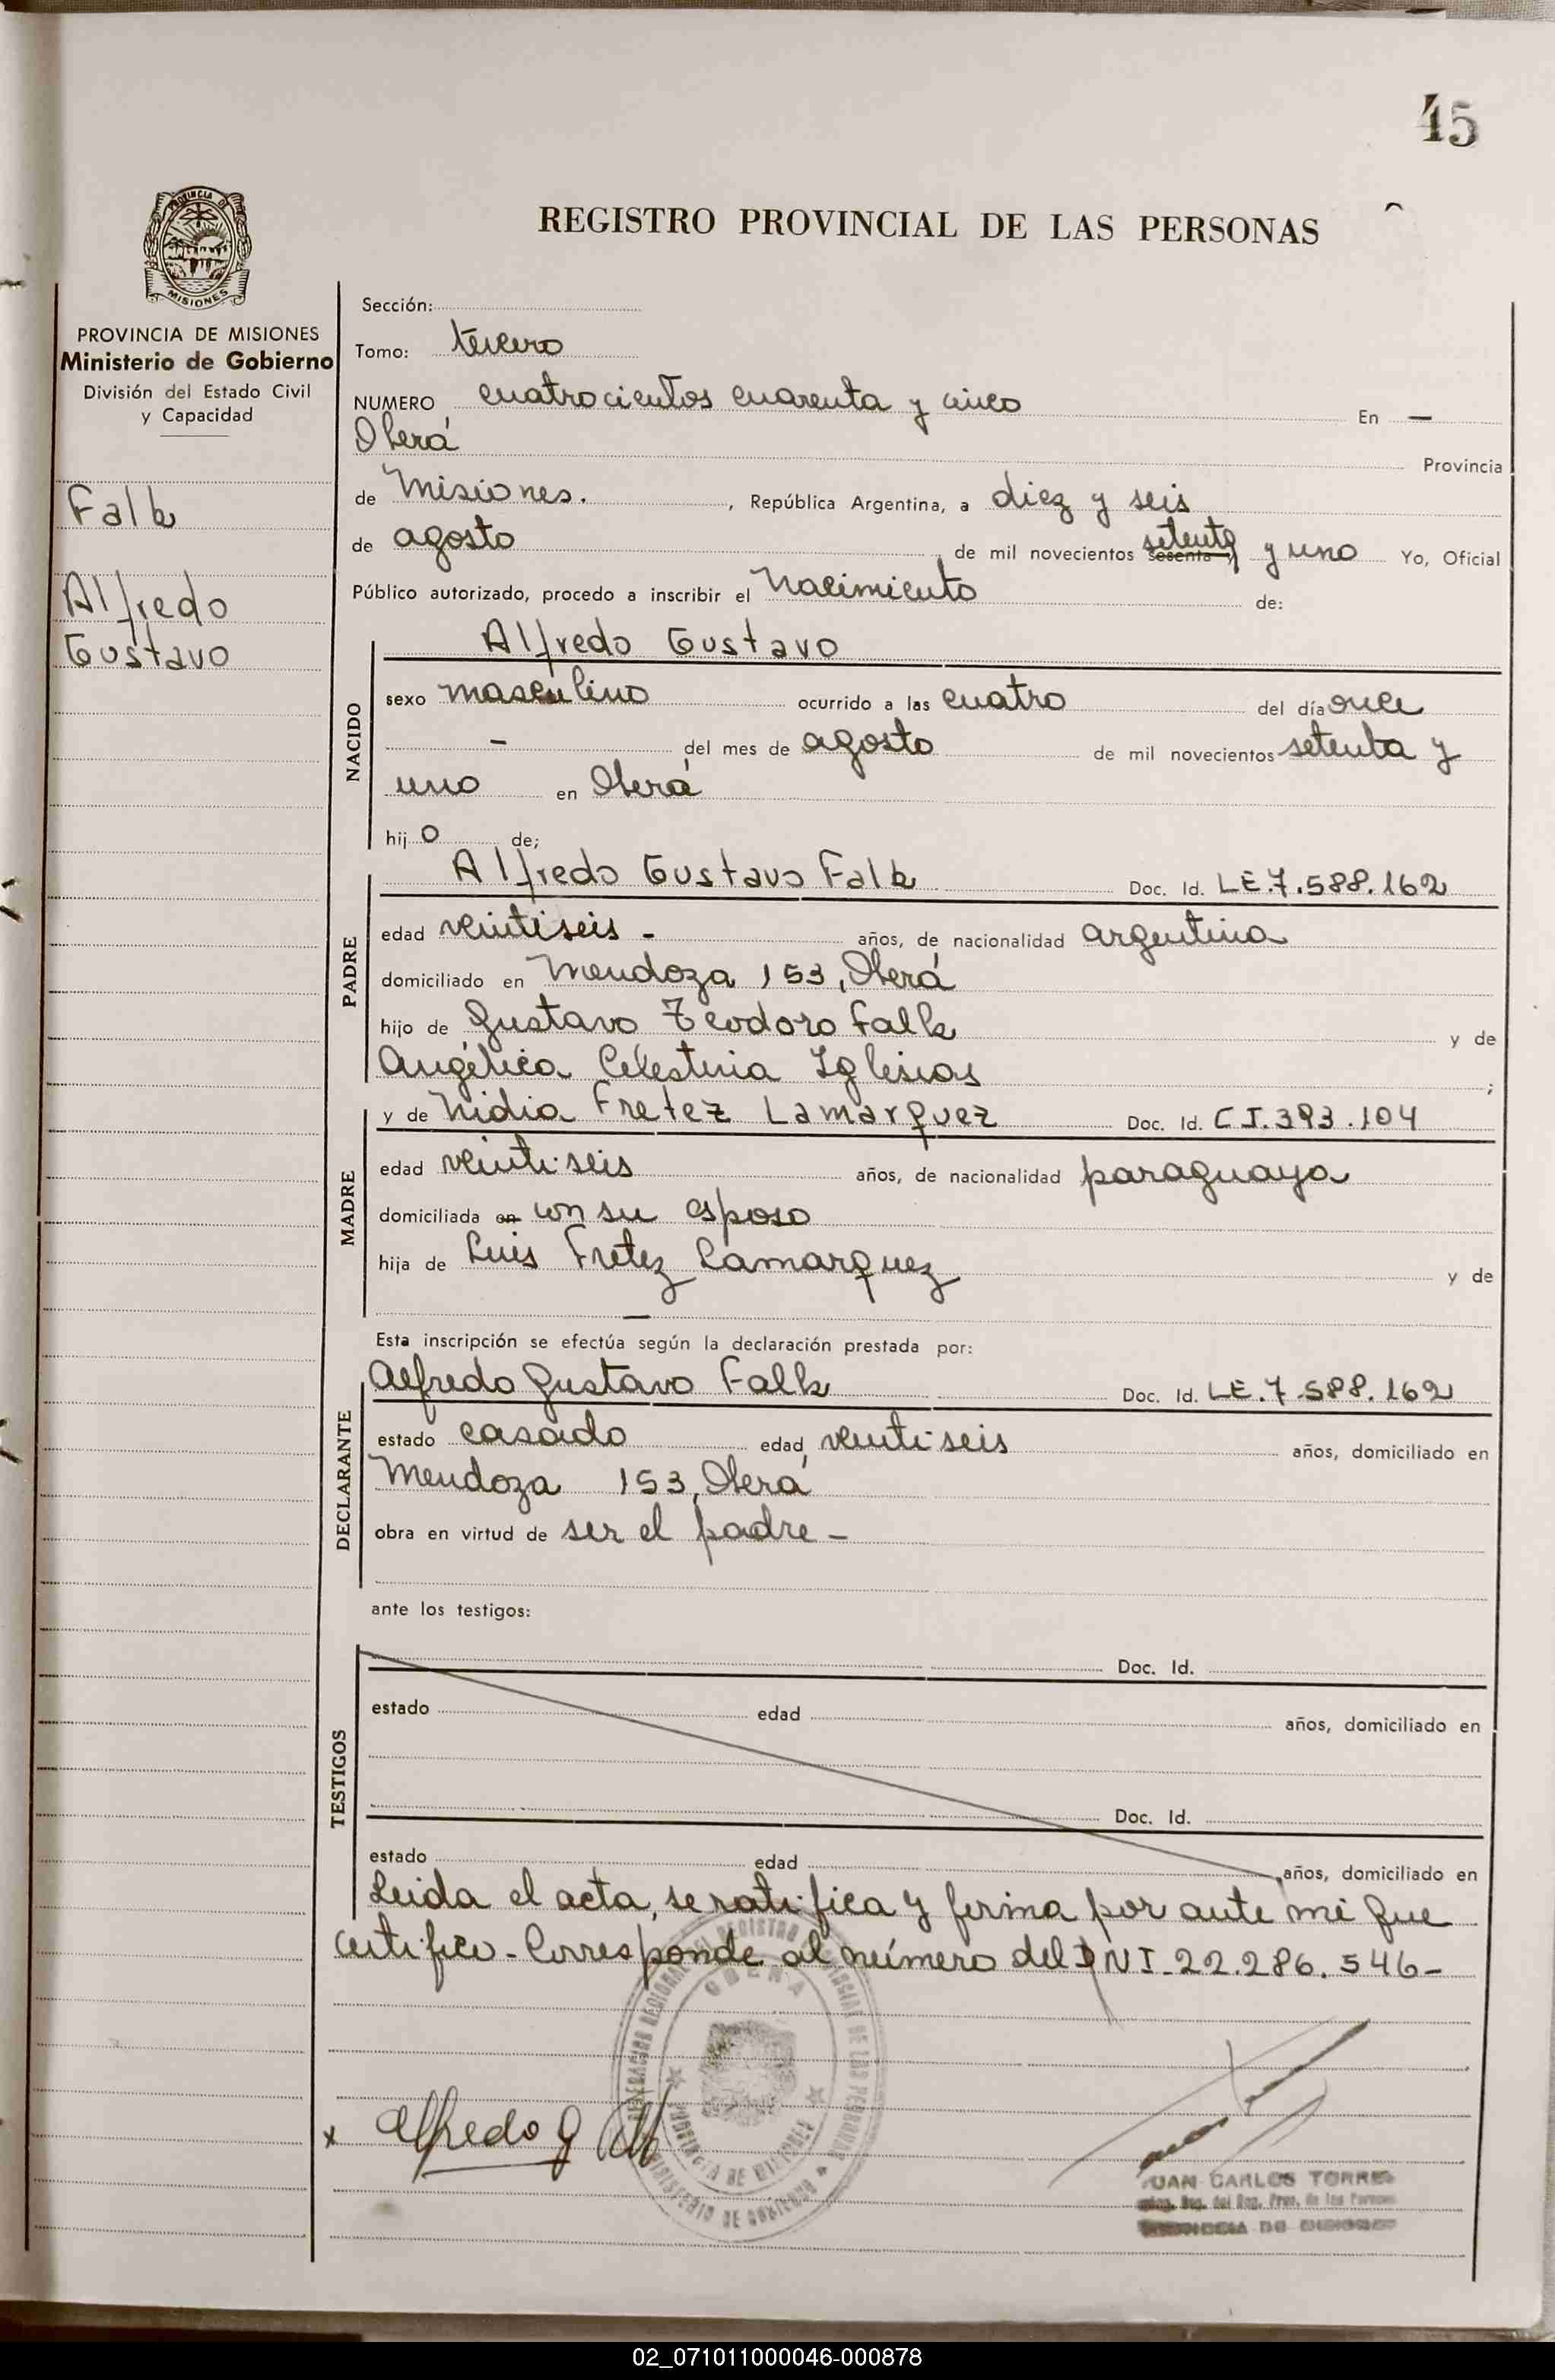 45
PROVINCIA DE
MISIONES
REGISTRO PROVINCIAL DE LAS PERSONAS
PROVINCIA DE MISIONES
Ministerio de Gobierno
División del Estado Civil
y Capacidad
Falk
Alfredo
Gustavo
Sección:
Tomo: tercero
NUMERO cuatrocientos cuarenta y cinco En —
Oberá Provincia
de Misiones. , República Argentina, a diez y seis
de agosto , de mil novecientos sesenta y setenta y uno Yo, Oficial
Público autorizado, procedo a inscribir el Nacimiento de:
NACIDO
Alfredo Gustavo
sexo masculino ocurrido a las cuatro del día once
— del mes de agosto de mil novecientos setenta y
uno en Oberá
hij o de;
PADRE
Alfredo Gustavo Falk Doc. Id. LE.7.588.162
edad veintiseis - años, de nacionalidad argentina
domiciliado en Mendoza 153, Oberá
hijo de Gustavo Teodoro Falk y de
Angélica Celestina Iglesias ;
MADRE
y de Nidia Fretez Lamarquez Doc. Id. C.I.393.104
edad veintiseis años, de nacionalidad paraguaya
domiciliada en con su esposo
hija de Luis Fretez Lamarquez y de
—
Esta inscripción se efectúa según la declaración prestada por:
DECLARANTE
Alfredo Gustavo Falk Doc. Id. LE.7.588.162
estado casado edad veintiseis años, domiciliado en
Mendoza 153, Oberá
obra en virtud de ser el padre -
ante los testigos:
TESTIGOS
Doc. Id.
estado edad años, domiciliado en
Doc. Id.
estado edad años, domiciliado en
Leida el acta, se ratifica y firma por ante mi que
certifico - Corresponde al número del DNI-22.286.546-
OBERA
PROVINCIA DE MISIONES
x Alfredo G
JUAN CARLOS TORRES
02_071011000046-000878